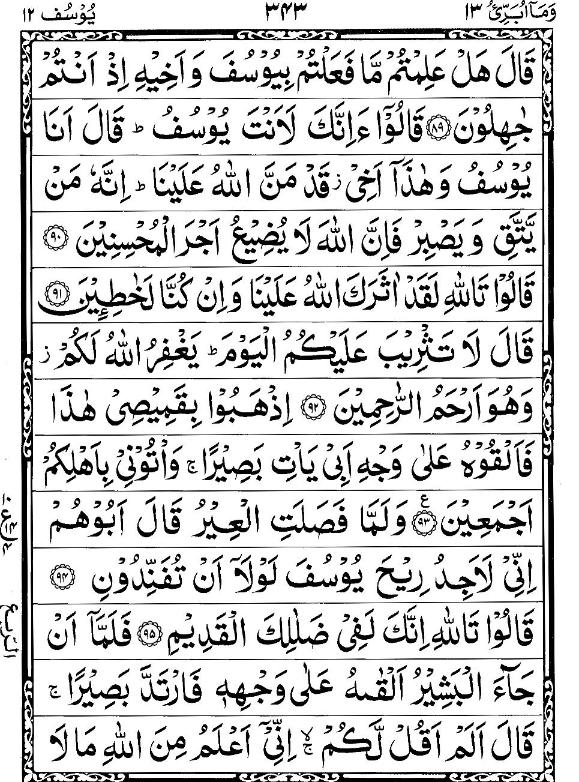 وَمَآ اُبَرِّئُ ١٣
٣٤٣
يُوْسُف ١٢
قَالَ هَلْ عَلِمْتُمْ مَّا فَعَلْتُمْ بِيُوْسُفَ وَاَخِيْهِ اِذْ اَنْتُمْ
جٰهِلُوْنَ ﴿٨٩﴾ قَالُوْٓا ءَاِنَّكَ لَاَنْتَ يُوْسُفُ ؕ قَالَ اَنَا
يُوْسُفُ وَهٰذَآ اَخِىْ ز قَدْ مَنَّ اللّٰهُ عَلَيْنَا ؕ اِنَّهٗ مَنْ
يَّتَّقِ وَيَصْبِرْ فَاِنَّ اللّٰهَ لَا يُضِيْعُ اَجْرَ الْمُحْسِنِيْنَ ﴿٩٠﴾
قَالُوْا تَاللّٰهِ لَقَدْ اٰثَرَكَ اللّٰهُ عَلَيْنَا وَاِنْ كُنَّا لَخٰطِـِٕيْنَ ﴿٩١﴾
قَالَ لَا تَثْرِيْبَ عَلَيْكُمُ الْيَوْمَ ؕ يَغْفِرُ اللّٰهُ لَكُمْ ز
وَهُوَ اَرْحَمُ الرّٰحِمِيْنَ ﴿٩٢﴾ اِذْهَبُوْا بِقَمِيْصِىْ هٰذَا
فَاَلْقُوْهُ عَلٰى وَجْهِ اَبِىْ يَاْتِ بَصِيْرًا ج وَاْتُوْنِىْ بِاَهْلِكُمْ
اَجْمَعِيْنَ ﴿٩٣﴾ ع وَلَمَّا فَصَلَتِ الْعِيْرُ قَالَ اَبُوْهُمْ
اِنِّىْ لَاَجِدُ رِيْحَ يُوْسُفَ لَوْلَآ اَنْ تُفَنِّدُوْنِ ﴿٩٤﴾
قَالُوْا تَاللّٰهِ اِنَّكَ لَفِىْ ضَلٰلِكَ الْقَدِيْمِ ﴿٩٥﴾ فَلَمَّآ اَنْ
جَآءَ الْبَشِيْرُ اَلْقٰىهُ عَلٰى وَجْهِهٖ فَارْتَدَّ بَصِيْرًا ج
قَالَ اَلَمْ اَقُلْ لَّكُمْ لا ج اِنِّىْٓ اَعْلَمُ مِنَ اللّٰهِ مَا لَا
الربع